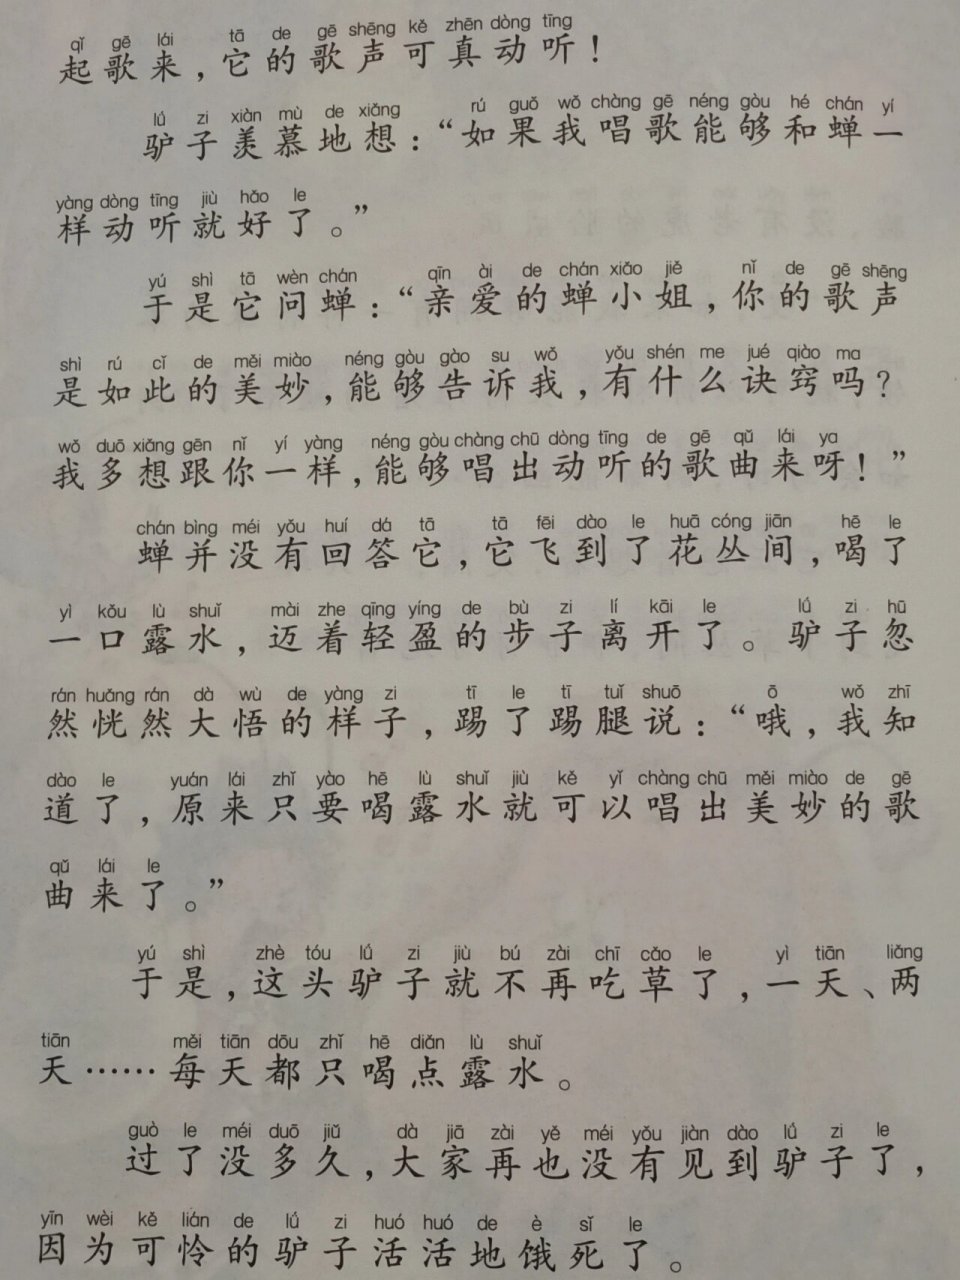 qǐ gē lái tā de gē shēng kě zhēn dòng tīng
起歌来，它的歌声可真动听！
lǘ zi xiàn mù de xiǎng rú guǒ wǒ chàng gē néng gòu hé chán yí
驴子羡慕地想：“如果我唱歌能够和蝉一
yàng dòng tīng jiù hǎo le
样动听就好了。”
yú shì tā wèn chán qīn ài de chán xiǎo jiě nǐ de gē shēng
于是它问蝉：“亲爱的蝉小姐，你的歌声
shì rú cǐ de měi miào néng gòu gào su wǒ yǒu shén me jué qiào ma
是如此的美妙，能够告诉我，有什么诀窍吗？
wǒ duō xiǎng gēn nǐ yí yàng néng gòu chàng chū dòng tīng de gē qǔ lái ya
我多想跟你一样，能够唱出动听的歌曲来呀！”
chán bìng méi yǒu huí dá tā tā fēi dào le huā cóng jiān hē le
蝉并没有回答它，它飞到了花丛间，喝了
yì kǒu lù shuǐ mài zhe qīng yíng de bù zi lí kāi le lǘ zi hū
一口露水，迈着轻盈的步子离开了。驴子忽
rán huǎng rán dà wù de yàng zi tī le tī tuǐ shuō ō wǒ zhī
然恍然大悟的样子，踢了踢腿说：“哦，我知
dào le yuán lái zhǐ yào hē lù shuǐ jiù kě yǐ chàng chū měi miào de gē
道了，原来只要喝露水就可以唱出美妙的歌
qǔ lái le
曲来了。”
yú shì zhè tóu lǘ zi jiù bú zài chī cǎo le yì tiān liǎng
于是，这头驴子就不再吃草了，一天、两
tiān měi tiān dōu zhǐ hē diǎn lù shuǐ
天……每天都只喝点露水。
guò le méi duō jiǔ dà jiā zài yě méi yǒu jiàn dào lǘ zi le
过了没多久，大家再也没有见到驴子了，
yīn wèi kě lián de lǘ zi huó huó de è sǐ le
因为可怜的驴子活活地饿死了。